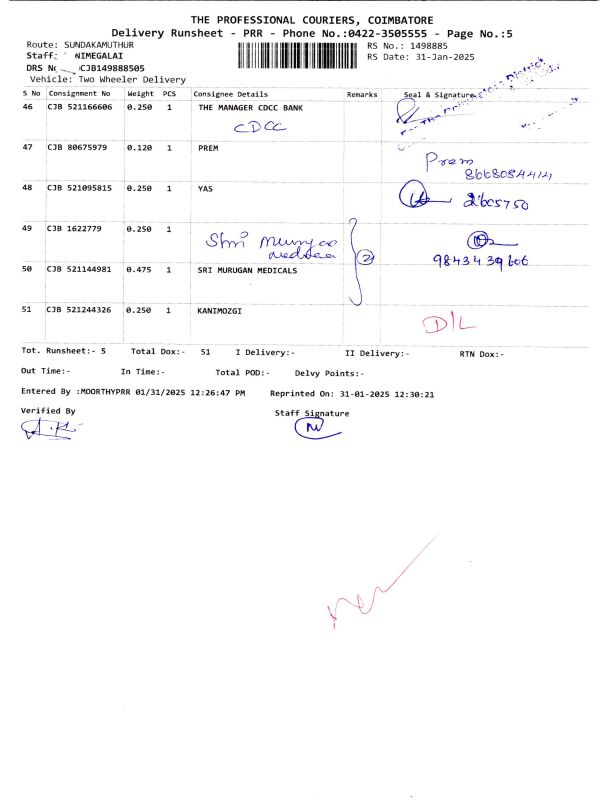 THE PROFESSIONAL COURIERS, COIMBATORE
Delivery Runsheet - PRR - Phone No.:0422-3505555 - Page No.:5
Route: SUNDAKAMUTHUR RS No.: 1498885
Staff: NIMEGALAI RS Date: 31-Jan-2025
DRS No CJB149888505
Vehicle: Two Wheeler Delivery
S No Consignment No Weight PCS Consignee Details Remarks Seal & Signature
46 CJB 521166606 0.250 1 THE MANAGER CDCC BANK
CDCC
47 CJB 80675979 0.120 1 PREM
Prem
8668084414
48 CJB 521095815 0.250 1 YAS
2605750
49 CJB 1622779 0.250 1
Shri
2
9843439606
50 CJB 521144981 0.475 1 SRI MURUGAN MEDICALS
51 CJB 521244326 0.250 1 KANIMOZGI
D/L
Tot. Runsheet:- 5 Total Dox:- 51 I Delivery:- II Delivery:- RTN Dox:-
Out Time:- In Time:- Total POD:- Delvy Points:-
Entered By :MOORTHYPRR 01/31/2025 12:26:47 PM Reprinted On: 31-01-2025 12:30:21
Verified By Staff Signature